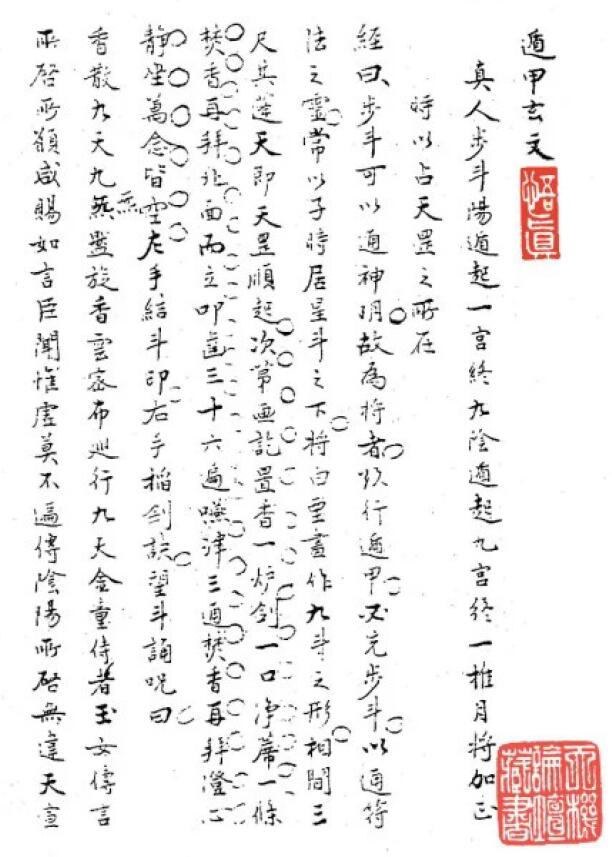 遁甲玄文
悟真
真人步斗陽遁起一宫終九陰遁起九宫終一推月將加正
時以占天罡之所在
經曰步斗可以通神明故為将者欲行遁甲必先步斗以通符
法之靈常以子時居星斗之下将白堊畫作九斗之形相間三
尺其逆天即天罡順起次第画訖置香一炉剑一口净蓆一條
焚香再拜北面而立叩齒三十六遍嚥津三通焚香再拜澄心
静坐萬念皆空左手結斗印右手掐剑訣望斗誦呪曰
香散九天九炁盤旋香雲密布巡行九天金童侍者玉女傳言
炁
所啓所願咸賜如言臣聞惟虚莫不遍傳陰陽所啓無違天宣
藏書